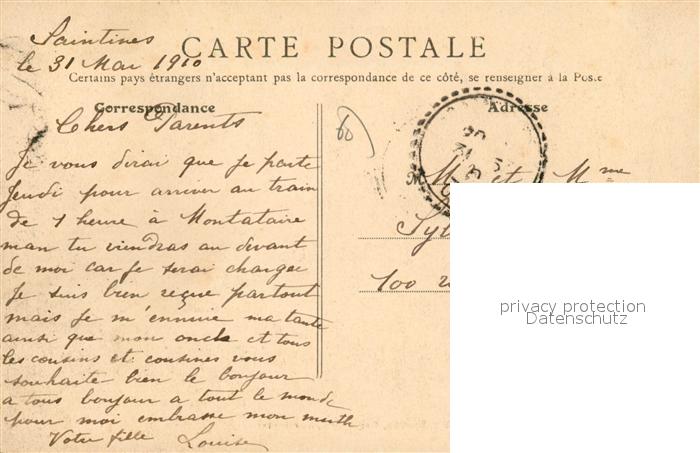 Saintines
le 31 Mai 1910
CARTE POSTALE
Certains pays étrangers n'acceptant pas la correspondance de ce côté, se renseigner à la Poste
Correspondance
Adresse
Chers Parents
Je vous dirai que je parte
Jeudi pour arriver au train
de 1 heure à Montataire
man tu viendras au devant
de moi car je serai chargee
Je suis bien reçue partout
mais je m'ennuie ma tante
ainsi que mon oncle et tous
les cousins et cousines vous
souhaite bien le bonjour
a tous bonjour a tout le monde
pour moi embrasse mon
Votre fille Louise
60
M et Mme
100
privacy protection
Datenschutz